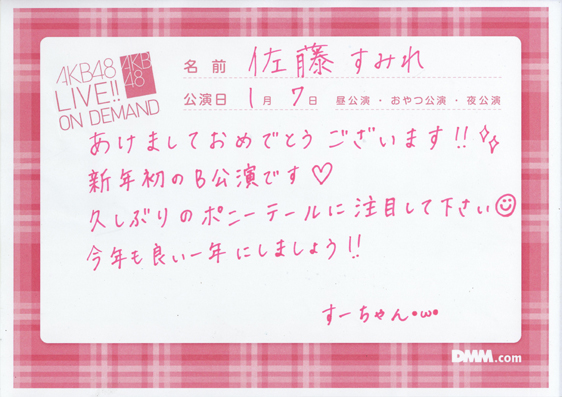 AKB48
LIVE!!
ON DEMAND
AKB
48
名前 佐藤すみれ
公演日 1月 7日 昼公演・おやつ公演・夜公演
あけましておめでとうございます!!
新年初のB公演です♡
久しぶりのポニーテールに注目して下さい☺
今年も良い一年にしましょう!!
すーちゃん•ω•
DMM.com